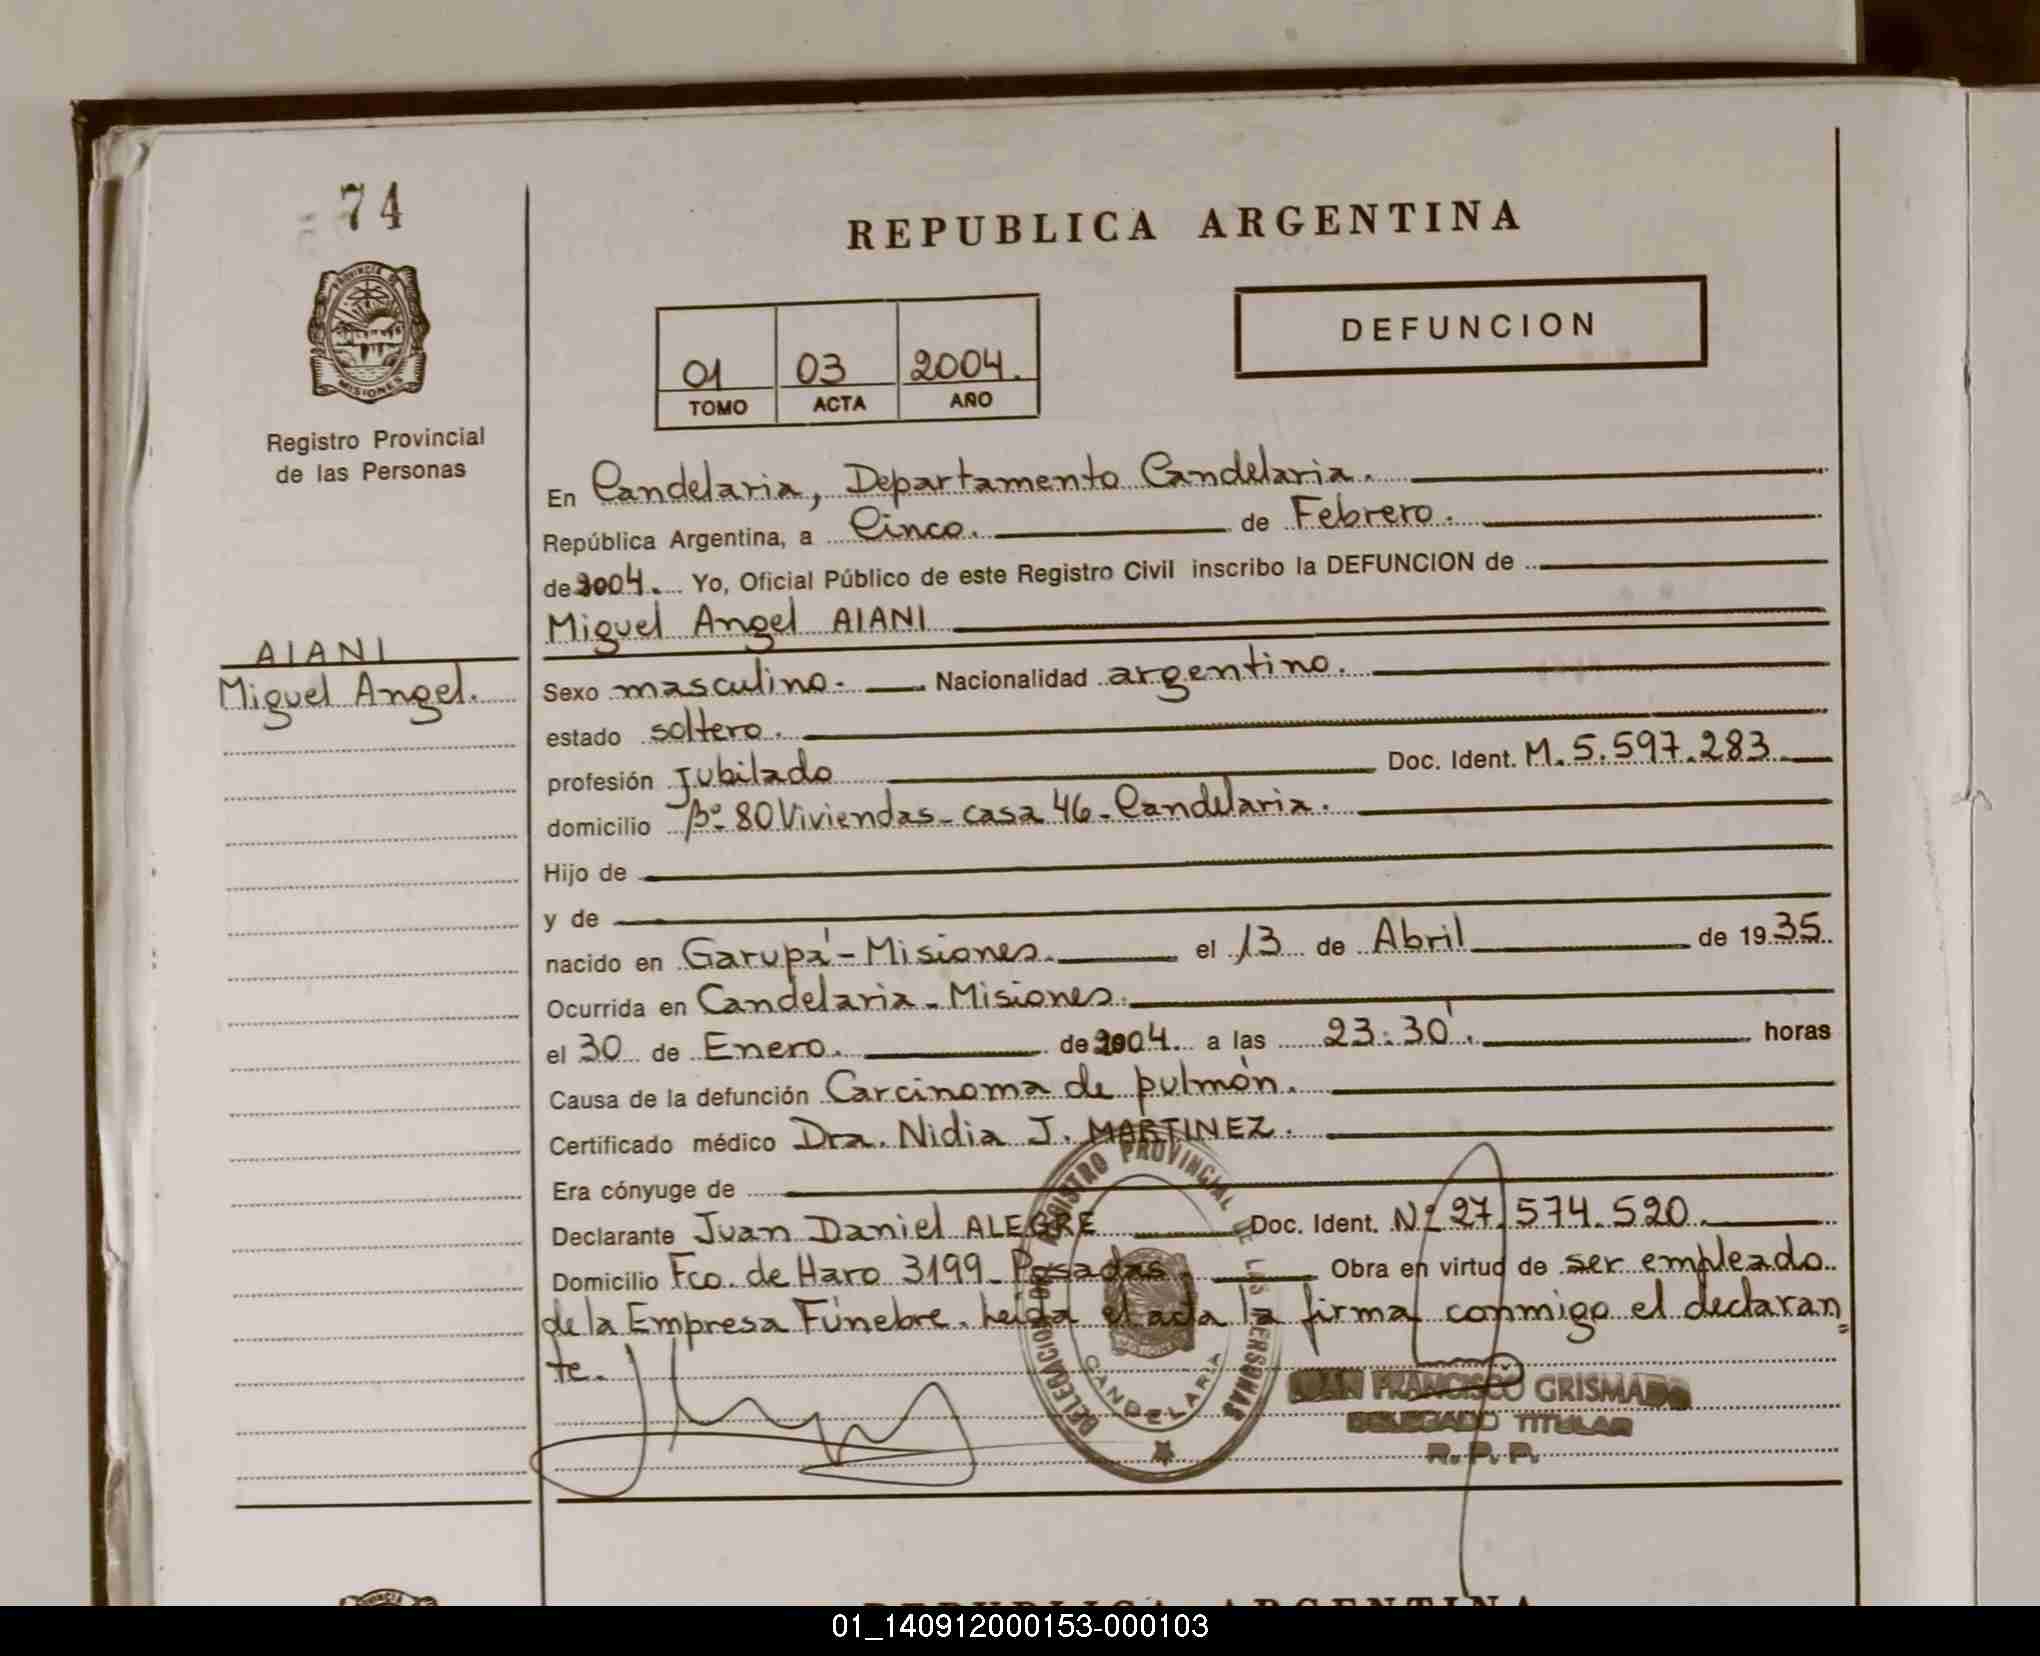 74
REPUBLICA ARGENTINA
PROVINCIA DE
MISIONES
DEFUNCION
01 03 2004.
TOMO ACTA AÑO
Registro Provincial
de las Personas
En Candelaria, Departamento Candelaria.
República Argentina, a Cinco. de Febrero.
de 2004. Yo, Oficial Público de este Registro Civil inscribo la DEFUNCION de
Miguel Angel AIANI
AIANI
Miguel Angel.
Sexo masculino. Nacionalidad argentino.
estado soltero.
profesión Jubilado Doc. Ident. M. 5.597.283
domicilio Bº 80 Viviendas - casa 46 - Candelaria.
Hijo de
y de
nacido en Garupá - Misiones. el 13 de Abril de 1935
Ocurrida en Candelaria - Misiones.
el 30 de Enero. de 2004. a las 23:30'. horas
Causa de la defunción Carcinoma de pulmón.
Certificado médico Dra. Nidia J. MARTINEZ.
Era cónyuge de
Declarante Juan Daniel ALEGRE Doc. Ident. Nº 27.574.520
Domicilio Fco. de Haro 3199 - Posadas. Obra en virtud de ser empleado
de la Empresa Fúnebre. Leída el acta la firma conmigo el declaran=
te.
DELEGACION REGISTRO PROVINCIAL DE LAS PERSONAS
CANDELARIA
JUAN FRANCISCO GRISMADO
DELEGADO TITULAR
R. P. P.
REPUBLICA ARGENTINA
01_140912000153-000103